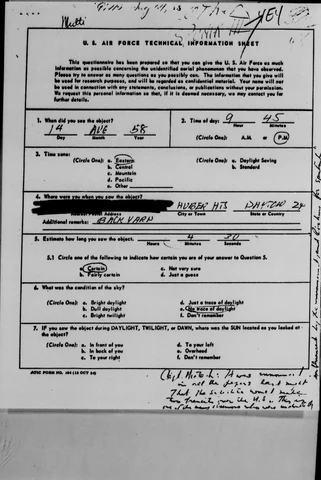 U. S. AIR FORCE TECHNICAL INFORMATION SHEET
This questionnaire has been prepared so that you can give the U. S. Air Force as much
information as possible concerning the unidentified aerial phenomenon that you have observed.
Please try to answer as many questions as you possibly can. The information that you give will
be used for research purposes, and will be regarded as confidential material. Your name will not
be used in connection with any statements, conclusions, or publications without your permission.
We request this personal information so that, if it is deemed necessary, we may contact you for
further details.
1. When did you see the object?
14 AUG 58
Day Month Year
2. Time of day: 9 45
Hour Minutes
(Circle One): A.M. or P.M.
3. Time zone:
(Circle One): a. Eastern
b. Central
c. Mountain
d. Pacific
e. Other
(Circle One): a. Daylight Saving
b. Standard
4. Where were you when you saw the object?
HUBER HTS DAYTON 24
Nearest Postal Address City or Town State or Country
Additional remarks: BACK YARD
5. Estimate how long you saw the object. 4 30
Hours Minutes Seconds
5.1 Circle one of the following to indicate how certain you are of your answer to Question 5.
a. Certain c. Not very sure
b. Fairly certain d. Just a guess
6. What was the condition of the sky?
(Circle One): a. Bright daylight d. Just a trace of daylight
b. Dull daylight e. No trace of daylight
c. Bright twilight f. Don't remember
7. IF you saw the object during DAYLIGHT, TWILIGHT, or DAWN, where was the SUN located as you looked at
the object?
(Circle One): a. In front of you d. To your left
b. In back of you e. Overhead
c. To your right f. Don't remember
ATIC FORM NO. 164 (13 OCT 54)
in not the papers
That the satellite would make